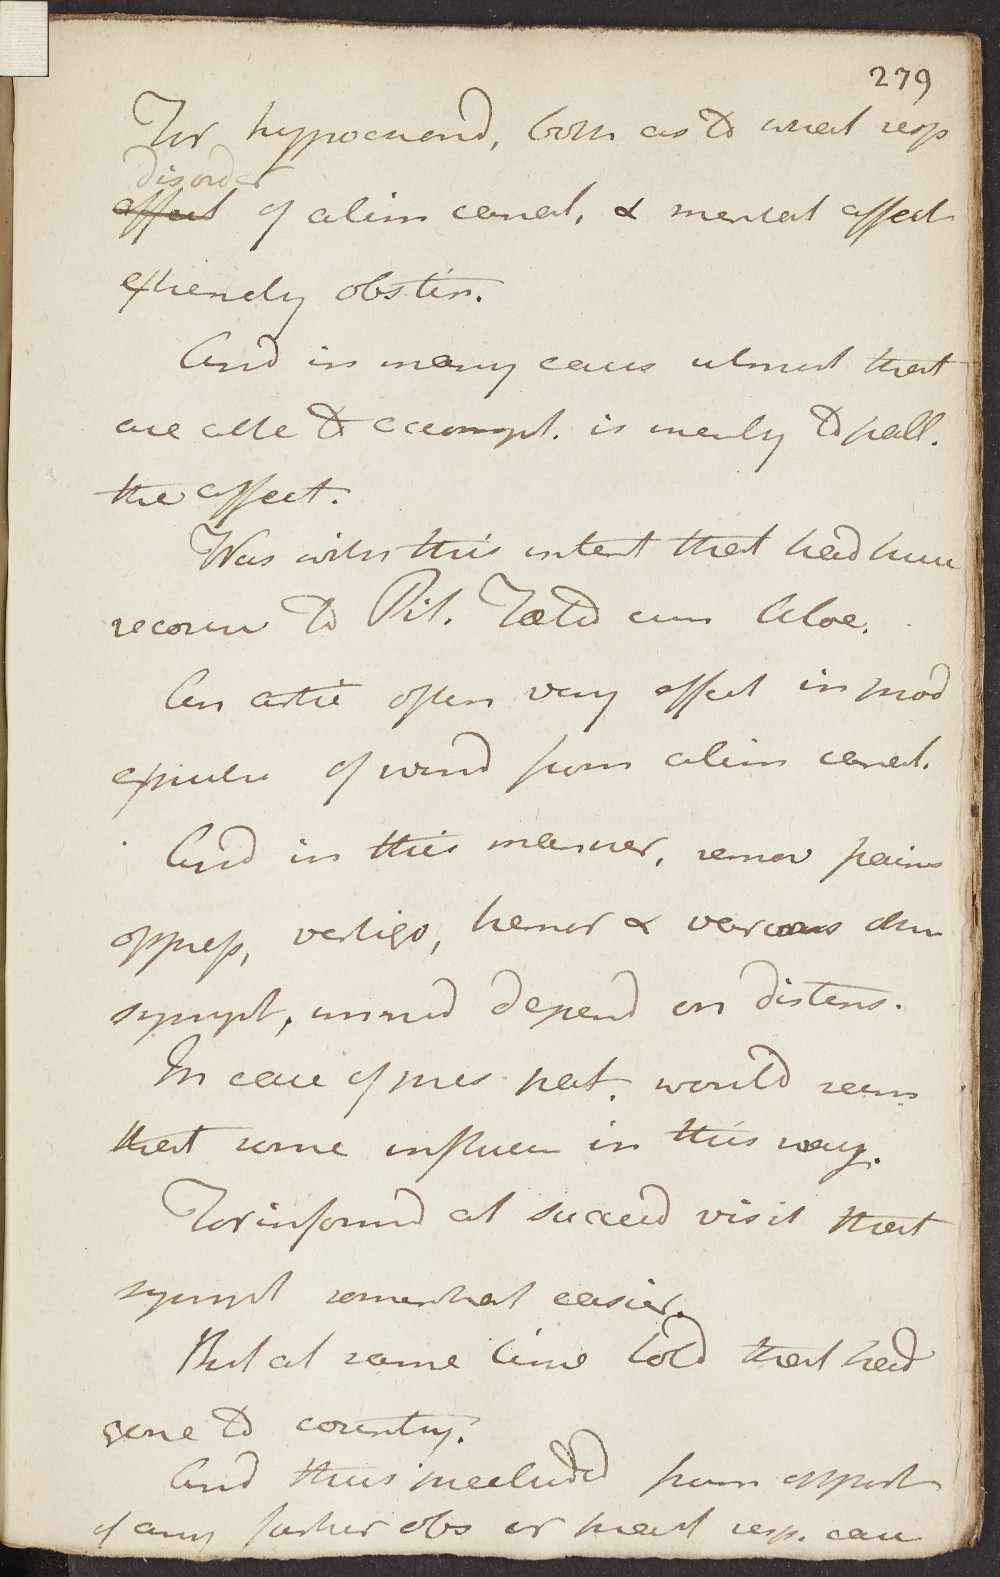 279
For hypochond, both as to what resp
disorder
affect of alim canal, & mental affect
extremely obstin.
And in many cases utmost that
are able to accompt. is merely to pall.
the affect.
Was with this intent that had hum
recourse to Pil. Fœtid cum Aloe.
An artic often very effect in mod
expuls of wind from alim canal.
And in this manner, remov pains
oppress, vertigo, tremor & various other
sympt, immed depend on distens.
In case of pres pat. would seem
that some influen in this way.
For informd at succeed visit that
sympt somewhat easier.
But at same time told that had
gone to country.
And thus precluded from opport
of any farther obs or treat resp. case